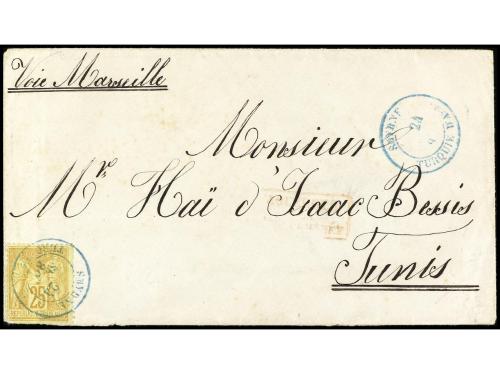 Voie Marseille
SMYRNE
24
TURQUIE
Monsieur
Mr. Haï d'Isaac Bessis
Tunis
25